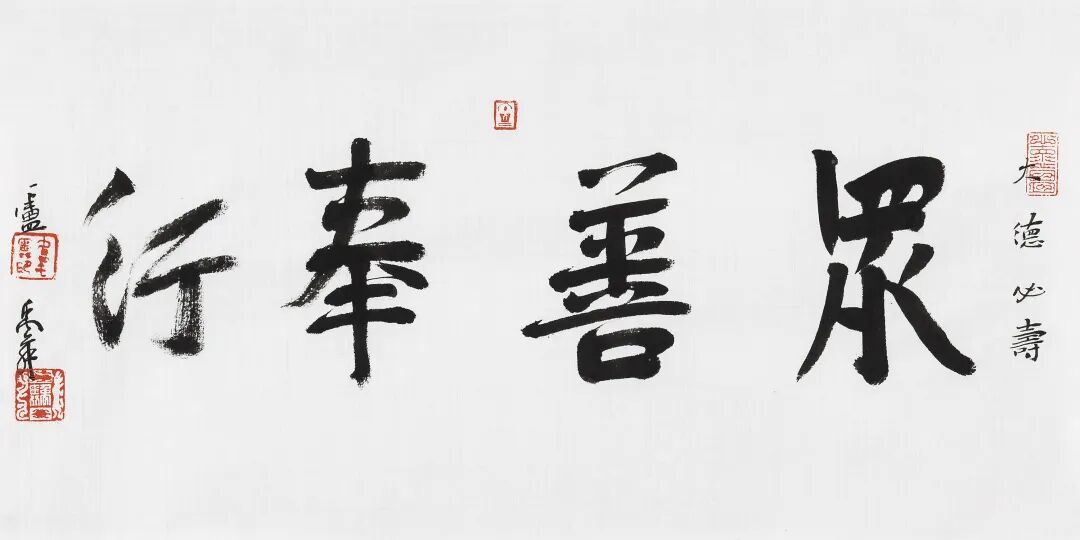 大德必壽
眾善奉行
一盧